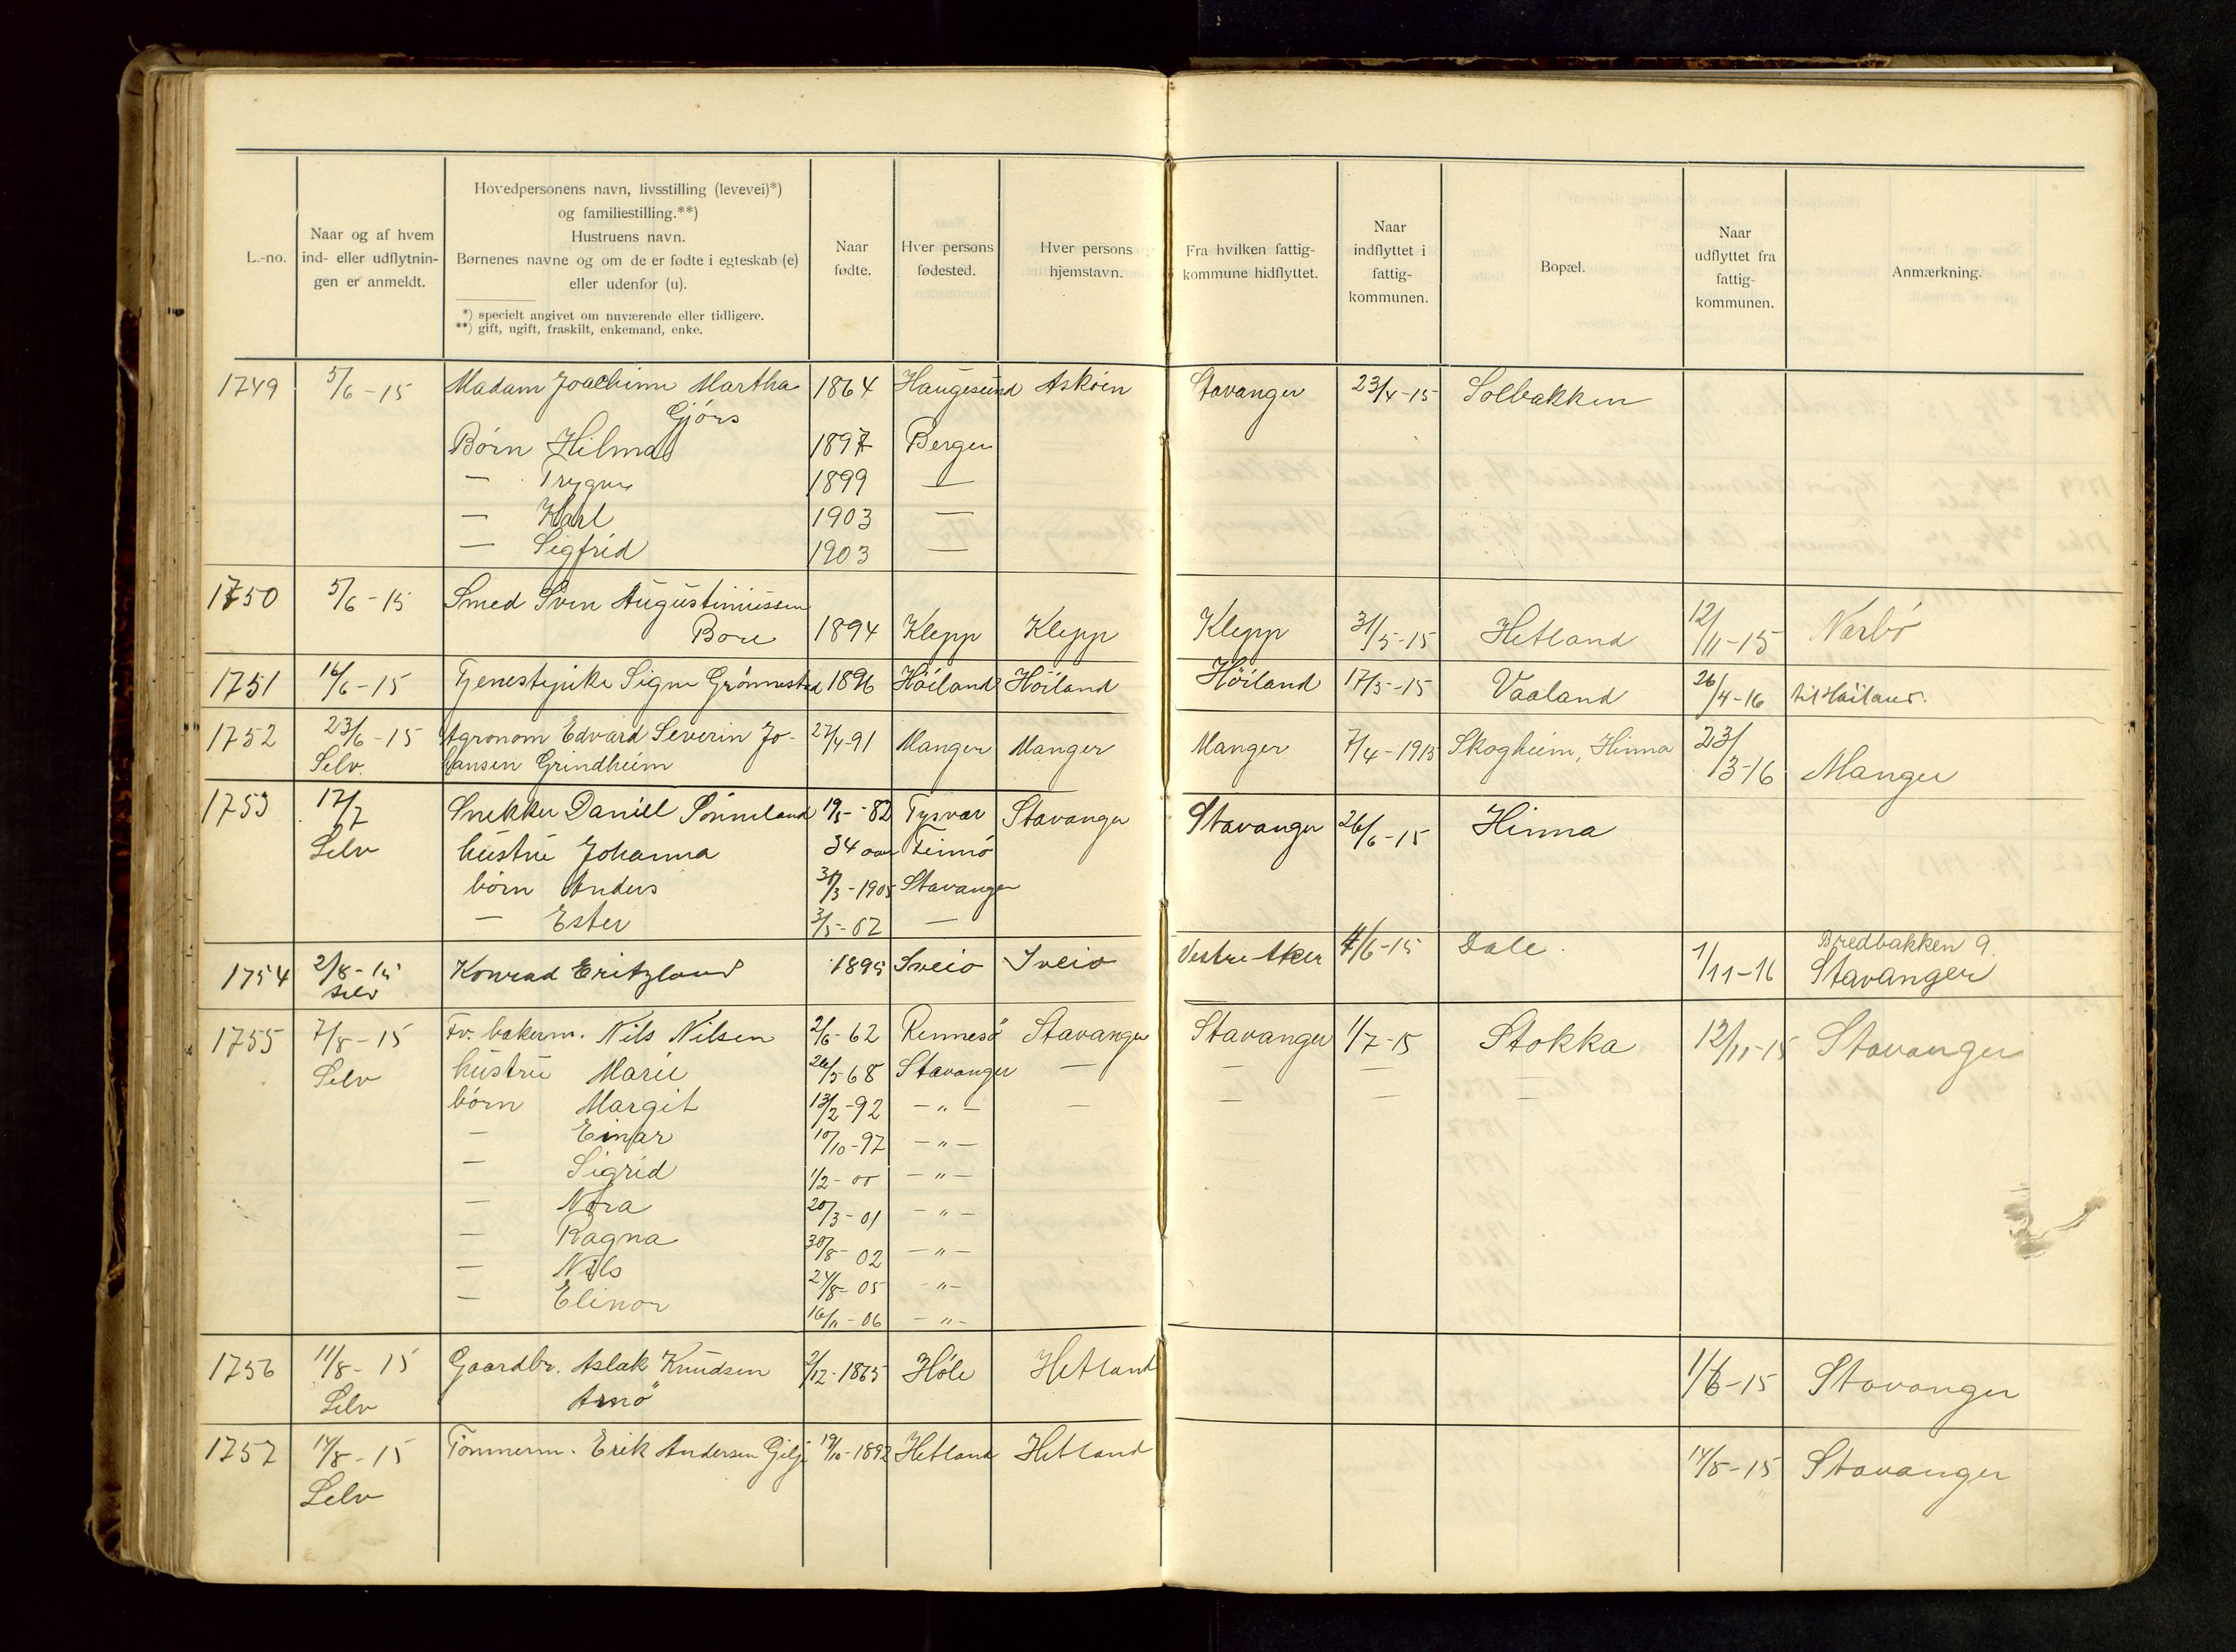 L.-no.
Naar og af hvem
ind- eller udflytnin-
gen er anmeldt.
Hovedpersonens navn, livsstilling (levevei)*)
og familiestilling.**)
Hustruens navn.
Børnenes navne og om de er fødte i egteskab (e)
eller udenfor (u).
*) specielt angivet om nuværende eller tidligere.
**) gift, ugift, fraskilt, enkemand, enke.
Naar
fødte.
Hver persons
fødested.
Hver persons
hjemstavn.
Fra hvilken fattig-
kommune hidflyttet.
Naar
indflyttet i
fattig-
kommunen.
Bopæl.
Naar
udflyttet fra
fattig-
kommunen.
Anmærkning.
1749 5/6-15 Madam Joachime Martha 1864 Haugesund Askøen Stavanger 23/4-15 Solbakken
Gjörs
Børn Hilma 1897 Bergen
— Trygve 1899 —
— Karl 1903 —
— Sigfrid 1903 —
1750 5/6-15 Smed Sven Augustinussen
Bore 1894 Klepp Klepp Klepp 31/5-15 Hetland 12/11-15 Nærbö
1751 16/6-15 Tjenestepike Signe Grönnestad 1896 Höiland Höiland Höiland 17/5-15 Vaaland 26/4-16 til Høiland.
1752 23/6-15 Agronom Edvard Severin Jo- 27/4-91 Manger Manger Manger 7/4-1915 Skogheim, Hinna 23/3-16 Manger
Selv. hansen Grindheim
1753 17/7 Snekker Daniel Sönneland 19/5-82 Tysvær Stavanger Stavanger 26/6-15 Hinna
Selv hustru Johanna 34 aar Finnö
børn Anders 30/3-1905 Stavanger
— Ester 3/5-07 —
1754 2/8-15 Konrad Eritzland 1895 Sveio Sveio Vestre Aker 4/6-15 Dale. 1/11-16 Bredbakken 9.
Selv Stavanger
1755 7/8-15 Fv. bakerm. Nils Nilsen 2/6-62 Rennesö Stavanger Stavanger 1/7-15 Stokka 12/11-15 Stavanger
Selv hustru Marie 26/5 68 Stavanger — — —
børn Margit 13/2-92 —"— — — — —
— Einar 10/10-97 —"—
— Sigrid 1/2-00 —"—
— Nora 20/3-01 —"—
— Ragna 30/8-02 —"—
— Nils 24/8-05 —"—
— Elinor 16/11-06 —"—
1756 11/8-15 Gaardbr. Aslak Knudsen 2/12-1865 Höle Hetland 1/6-15 Stavanger
Selv Arnö
1757 14/8-15 Tömmerm. Erik Andersen Gilje 19/10-1892 Hetland Hetland 14/8-15 Stavanger
Selv